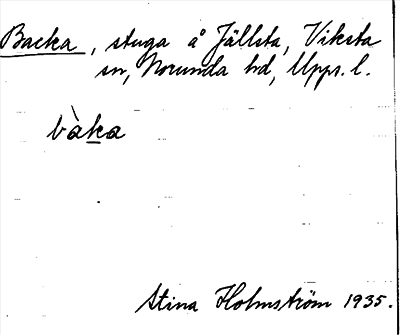 Backa, stuga å Jällsta, Viksta
sn, Norunda hd, Upps. l.
bàka
Stina Holmström 1935.